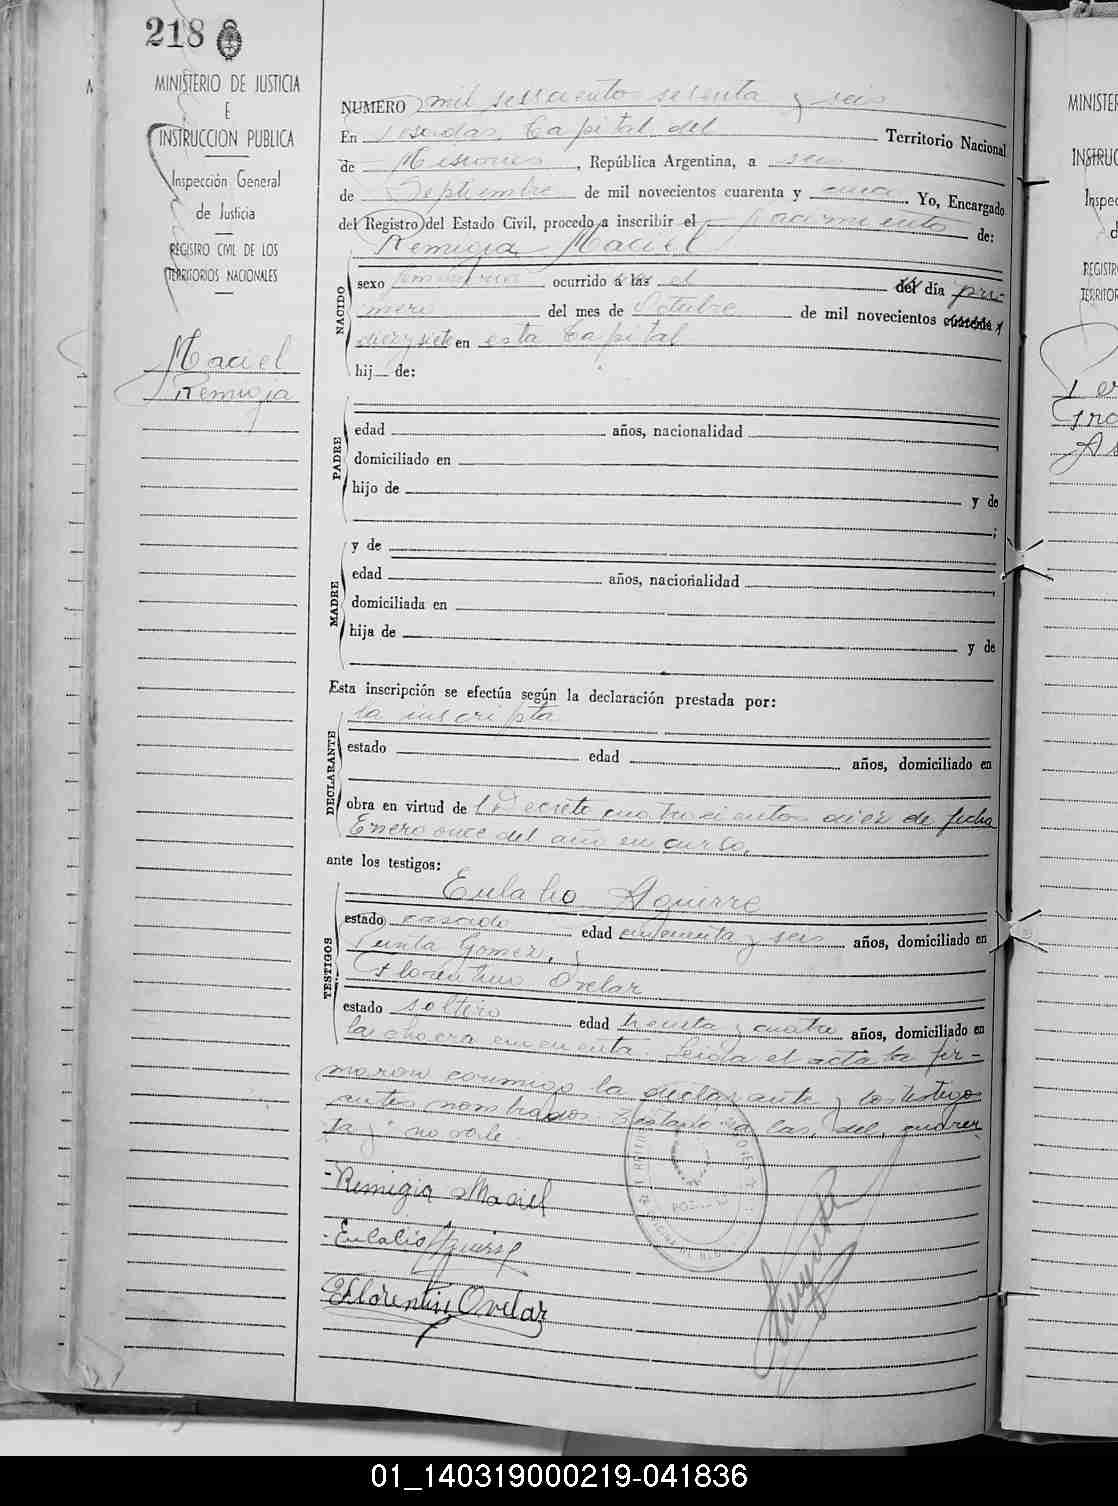 218
MINISTERIO DE JUSTICIA
E
INSTRUCCION PUBLICA
Inspección General
de Justicia
REGISTRO CIVIL DE LOS
TERRITORIOS NACIONALES
Maciel
Remigia
NUMERO mil seiscientos setenta y seis
En Posadas, Capital del Territorio Nacional
de Misiones, República Argentina, a seis
de Septiembre de mil novecientos cuarenta y cinco. Yo, Encargado
del Registro del Estado Civil, procedo a inscribir el nacimiento de:
Remigia Maciel
NACIDO
sexo femenino ocurrido a las el del día pri-
mero del mes de Octubre de mil novecientos cuarenta y
diez y siete en esta Capital
hij de:
PADRE
edad años, nacionalidad ,
domiciliado en
hijo de y de
;
MADRE
y de
edad años, nacionalidad ,
domiciliada en
hija de y de
Esta inscripción se efectúa según la declaración prestada por:
la inscripta
DECLARANTE
estado edad años, domiciliado en
obra en virtud de Decreto cuatrocientos diez de fecha
Enero once del año en curso.
ante los testigos:
Eulalio Aguirre
TESTIGOS
estado casado edad cincuenta y seis años, domiciliado en
Punta Gomez, y
Florentino Ovelar
estado soltero edad treinta y cuatro años, domiciliado en
la chacra cincuenta. Leída el acta la fir-
maron conmigo la declarante y los testigos
antes nombrados. Testado: a las, del, cuaren
ta y: no vale.
-Remigia Maciel
-Eulalio Aguirre
Florentin Ovelar
MINISTER
INSTRUC
Inspec
d
REGISTR
TERRITOR
01_140319000219-041836